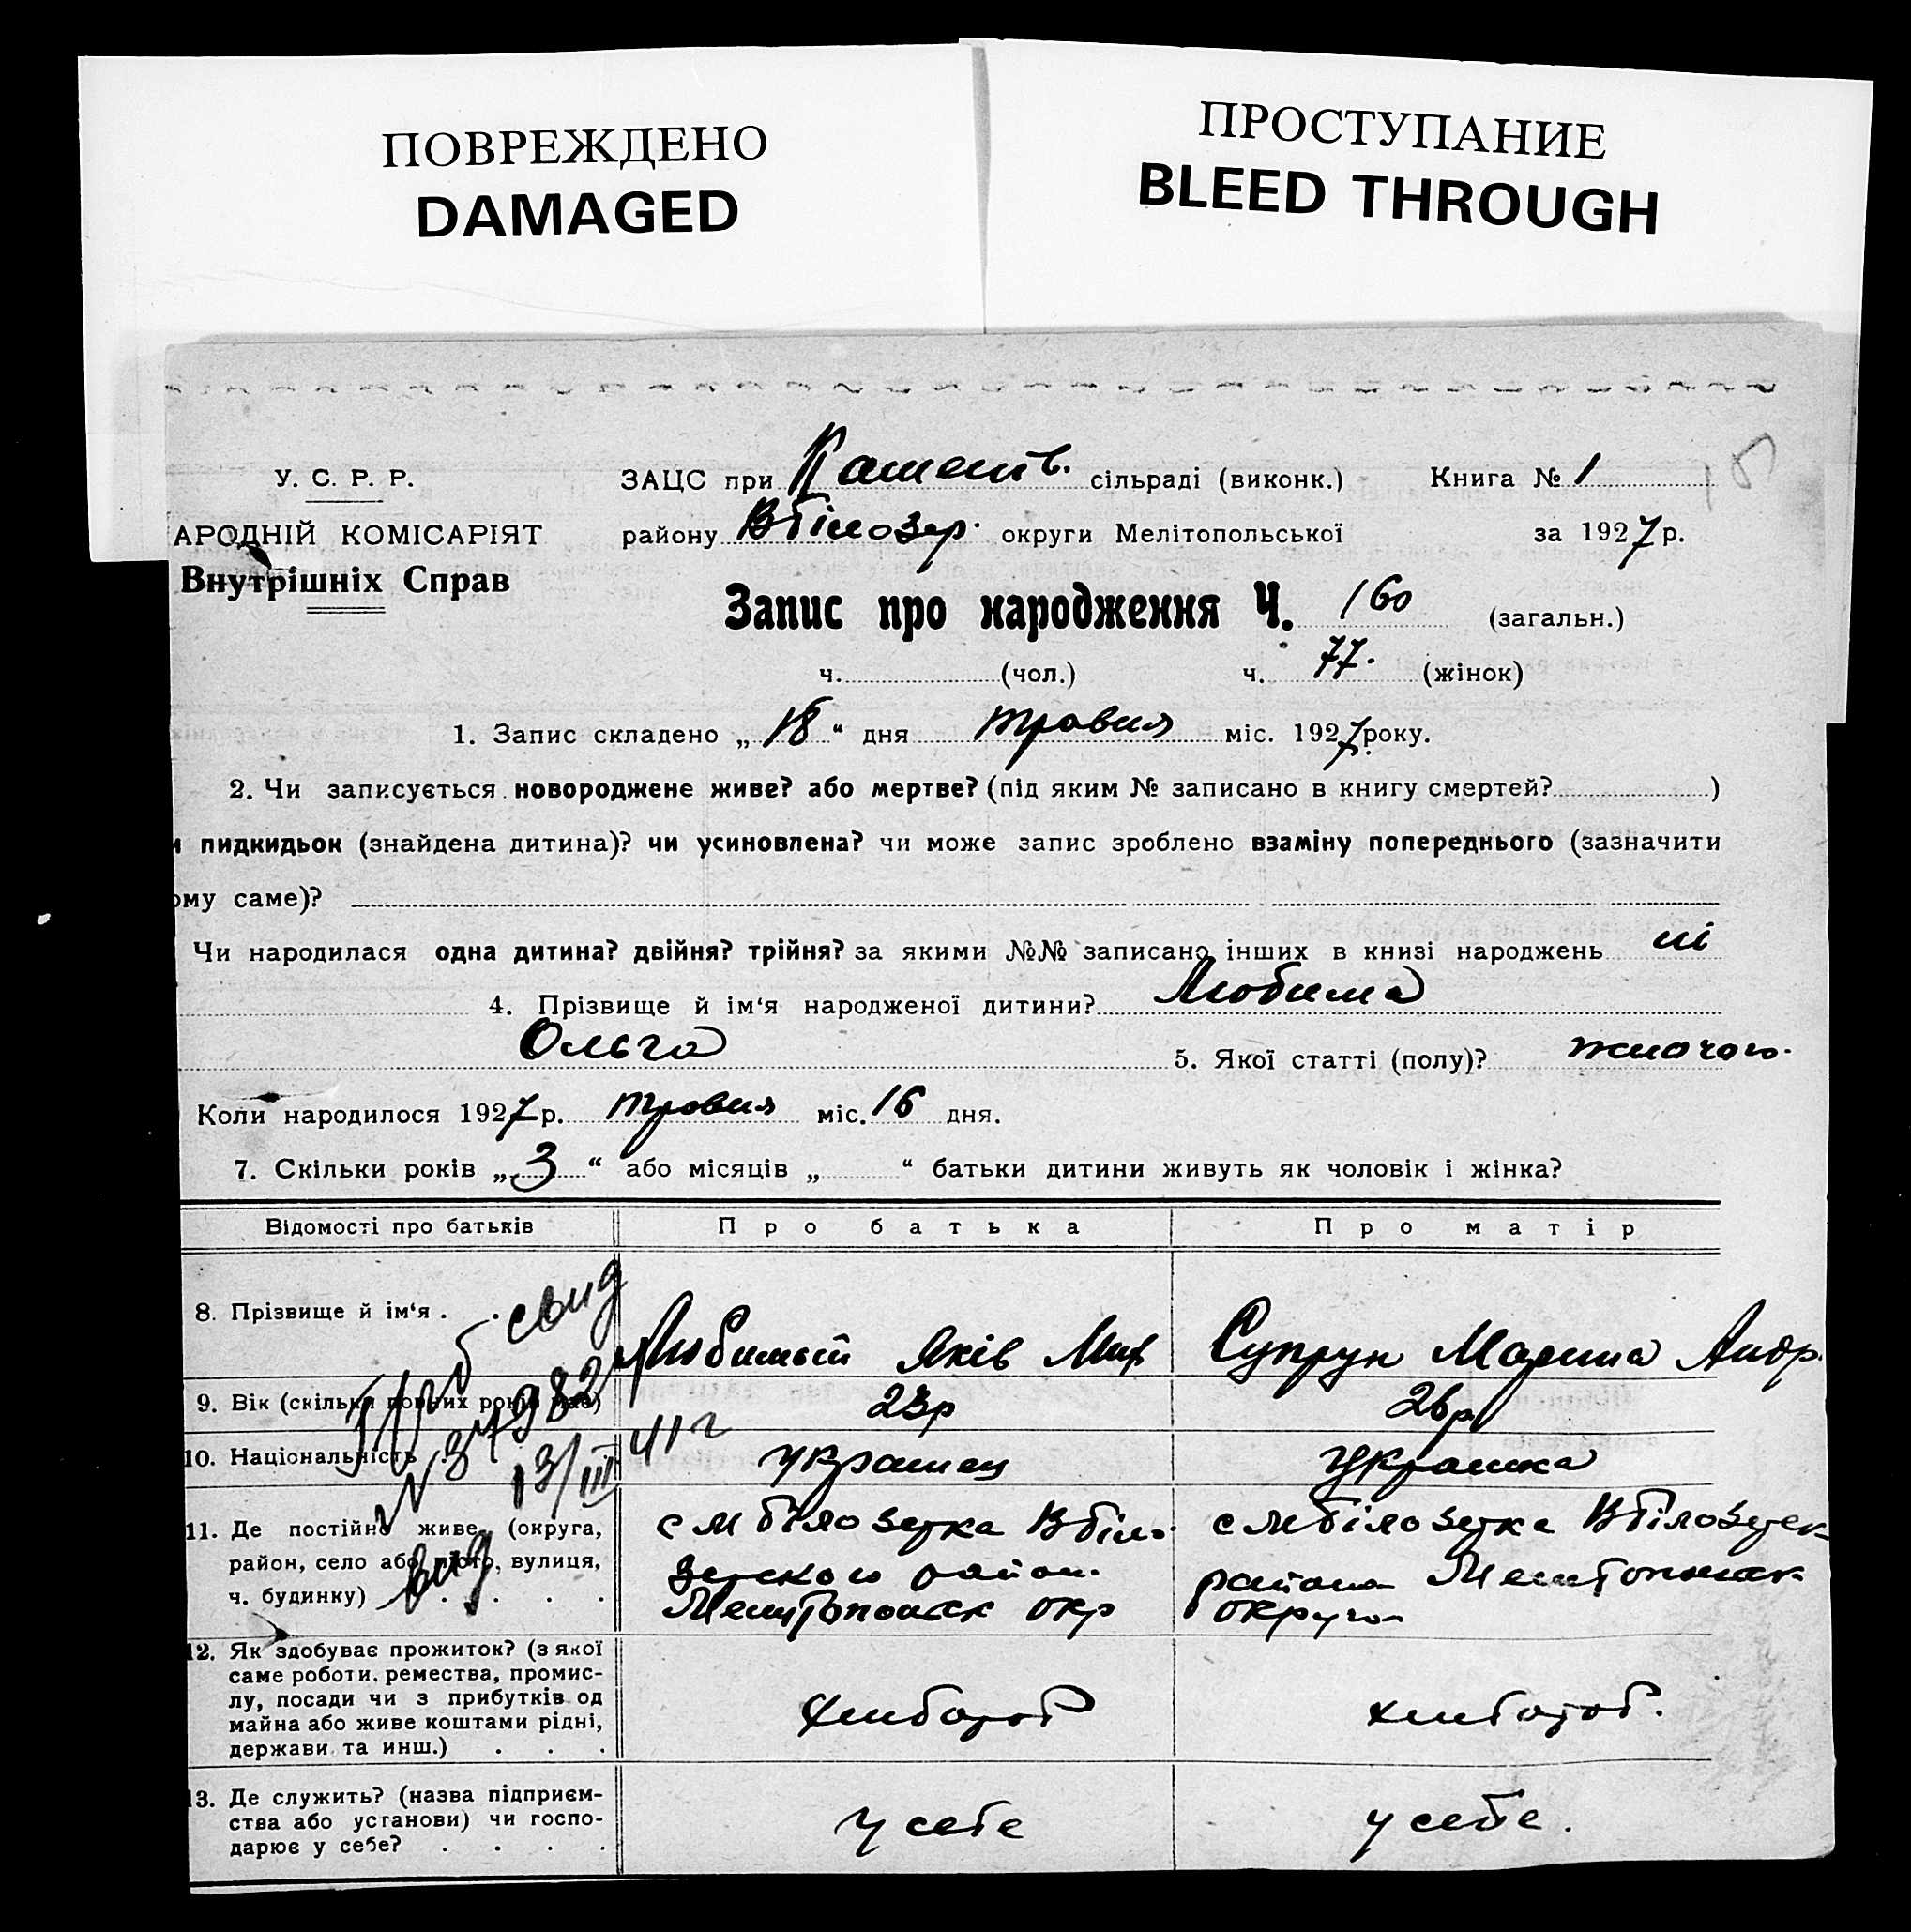 ПОВРЕЖДЕНО
DAMAGED
ПРОСТУПАНИЕ
BLEED THROUGH
У. С. Р. Р.
АРОДНІЙ КОМІСАРІЯТ
Внутрішніх Справ
ЗАЦС при сільраді (виконк.) Книга № 1
району Вбілозер. округи Мелітопольської за 1927 р.
Запис про народження Ч. 160 (загальн.)
ч. (чол.) ч. 77. (жінок)
1. Запис складено „ 18 “ дня травня міс. 1927 року.
2. Чи записується новороджене живе? або мертве? (під яким № записано в книгу смертей? )
и пидкидьок (знайдена дитина)? чи усиновлена? чи може запис зроблено взаміну попереднього (зазначити
ому саме)?
Чи народилася одна дитина? двійня? трійня? за якими №№ записано інших в книзі народжень ні
4. Прізвище й ім‘я народженої дитини? Любима
Ольга 5. Якої статті (полу)? жіночого.
Коли народилося 1927 р. травня міс. 16 дня.
7. Скільки років „ 3 “ або місяців „ “ батьки дитини живуть як чоловік і жінка?
Відомості про батьків Про батька Про матір
8. Прізвище й ім‘я . . Любимый Яків Мих Супрун Марина Андр.
9. Вік (скільки повних років має) 23р 26р
10. Національність украинец украинка
11. Де постійно живе (округа,
район, село або місто, вулиця,
ч. будинку) . . . .
с Мбілозерка Вбіло
зерского район.
Мелитопольск окр
с Мбілозерка Вбілозерск
района Мелитопольск
округи
12. Як здобуває прожиток? (з якої
саме роботи, ремества, промис-
лу, посади чи з прибутків од
майна або живе коштами рідні,
держави та инш.) . . .
хлибороб хлибороб.
13. Де служить? (назва підприєм-
ства або установи) чи госпо-
дарює у себе? . . . .
у себе у себе.
свид
N 37982
13/III 41 г
вид